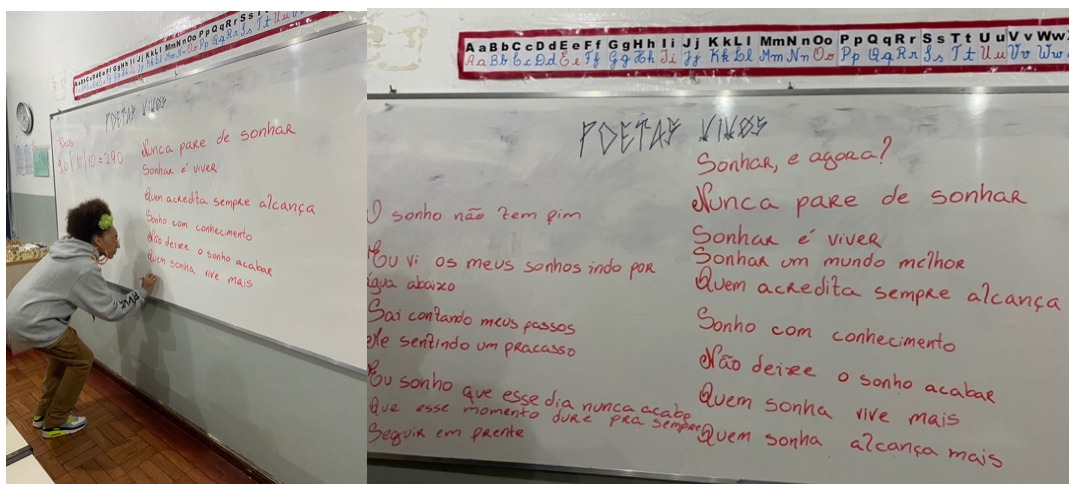 Aa Bb Cc Dd Ee Ff Gg Hh Ii Jj Kk Ll Mm Nn Oo Pp Qq Rr Ss
POETAS VIVOS
Nunca pare de sonhar
Sonhar é viver
Quem acredita sempre alcança
Sonho com conhecimento
Não deixe o sonho acabar
Quem sonha vive mais
Aa Bb Cc Dd Ee Ff Gg Hh Ii Jj Kk Ll Mm Nn Oo Pp Qq Rr Ss Tt Uu Vv Ww
Aa Bb Cc Dd Ee Ff Gg Hh Ii Jj Kk Ll Mm Nn Oo Pp Qq Rr Ss Tt Uu Vv Ww
POETAS VIVOS
O sonho não tem fim
Eu vi os meus sonhos indo por
água abaixo
Sai contando meus passos
Me sentindo um fracasso
Eu sonho que esse dia nunca acabe
Que esse momento dure pra sempre
Seguir em frente
Sonhar, e agora?
Nunca pare de sonhar
Sonhar é viver
Sonhar um mundo melhor
Quem acredita sempre alcança
Sonho com conhecimento
Não deixe o sonho acabar
Quem sonha vive mais
Quem sonha alcança mais